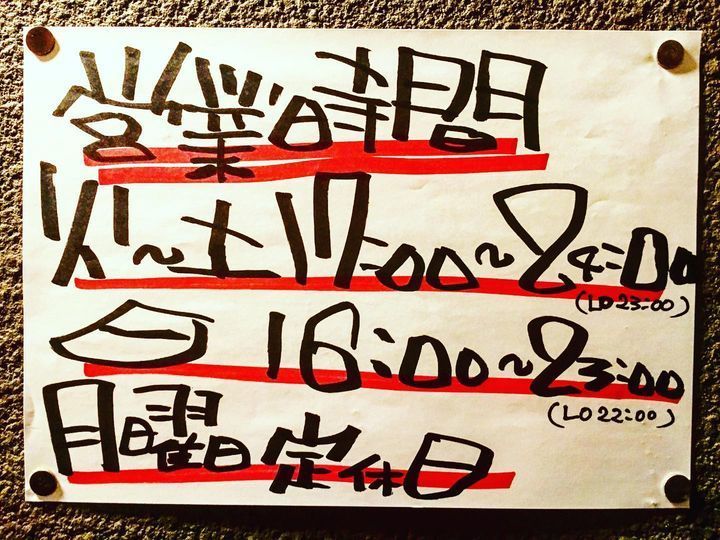 営業時間
火~土 17:00~24:00
(LO 23:00)
日 16:00~23:00
(LO 22:00)
月曜日定休日